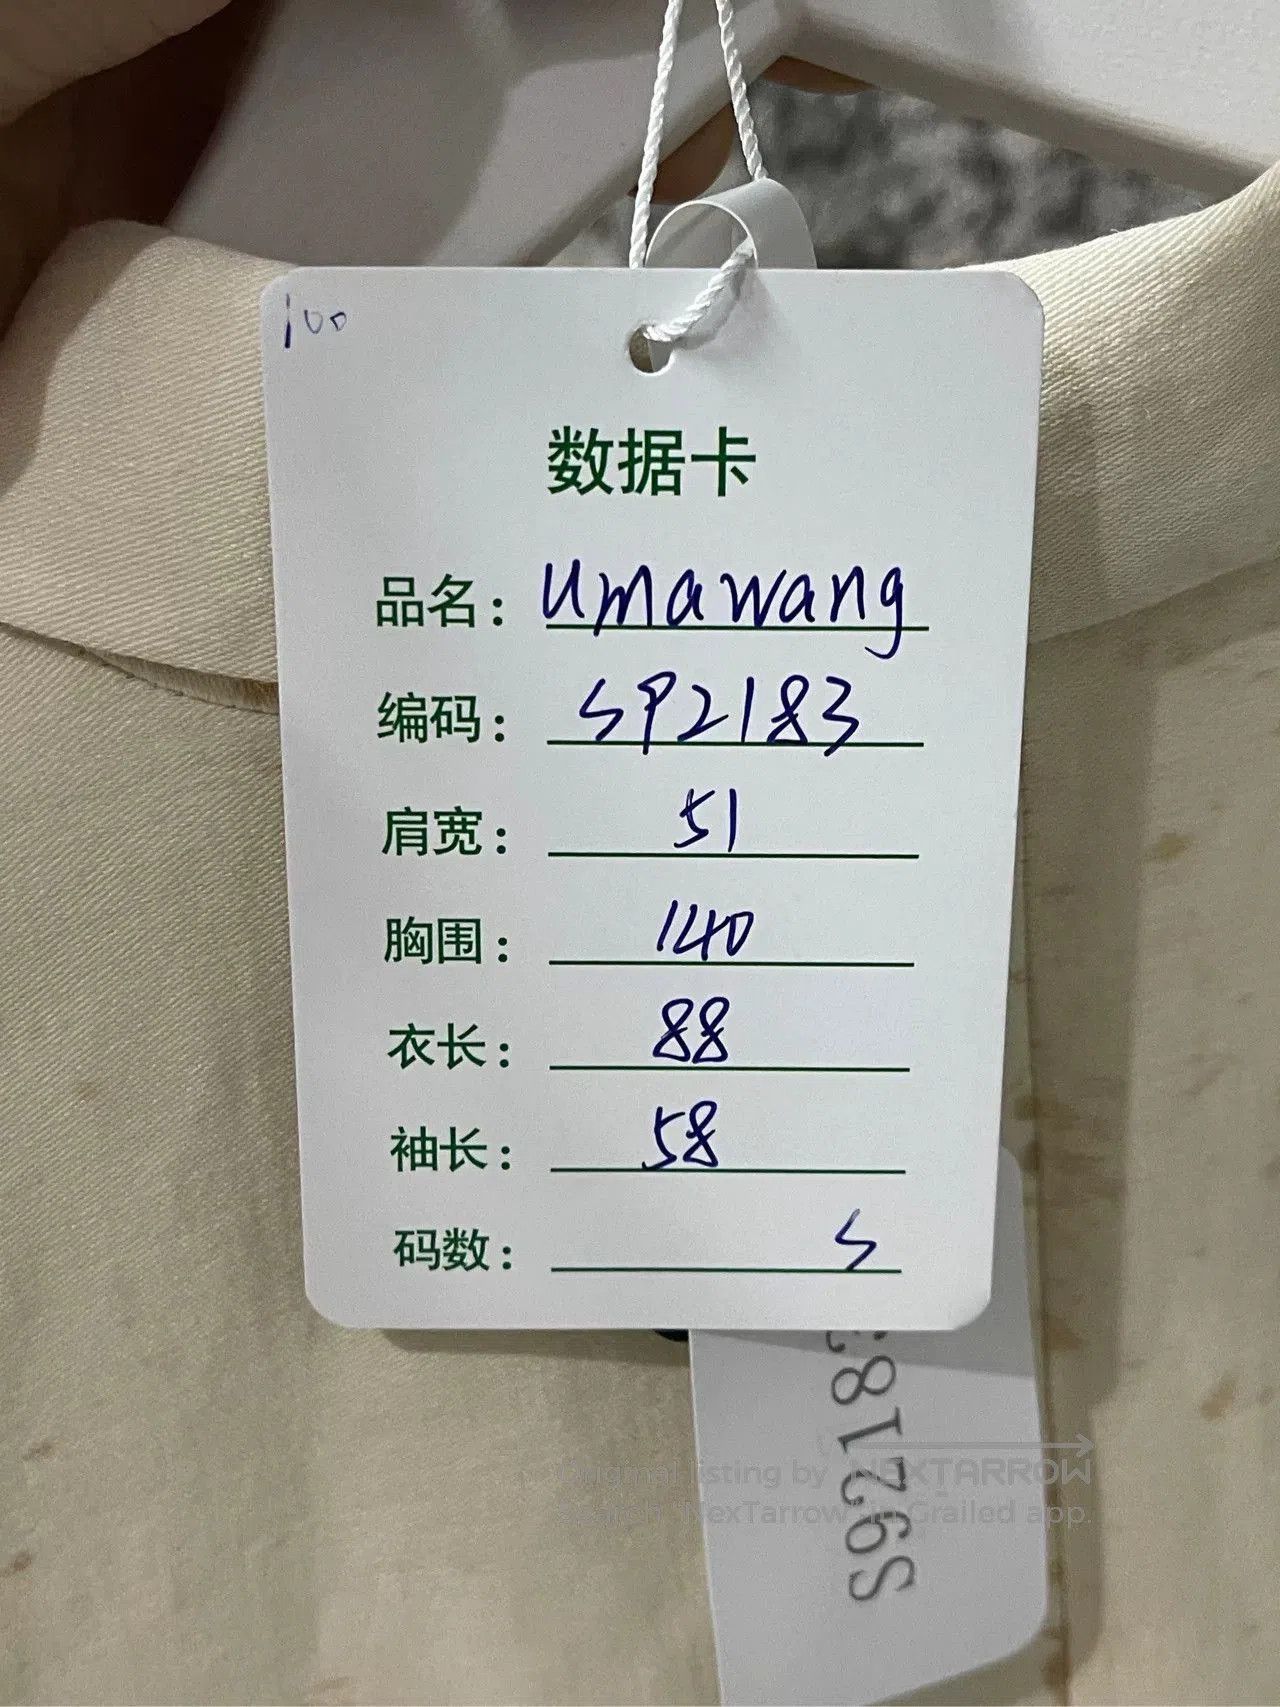 100
数据卡
品名: umawang
编码: SP2183
肩宽: 51
胸围: 140
衣长: 88
袖长: 58
码数: S
S92183
Original listing by NEXTARROW
Search "NexTarrow" in Grailed app.